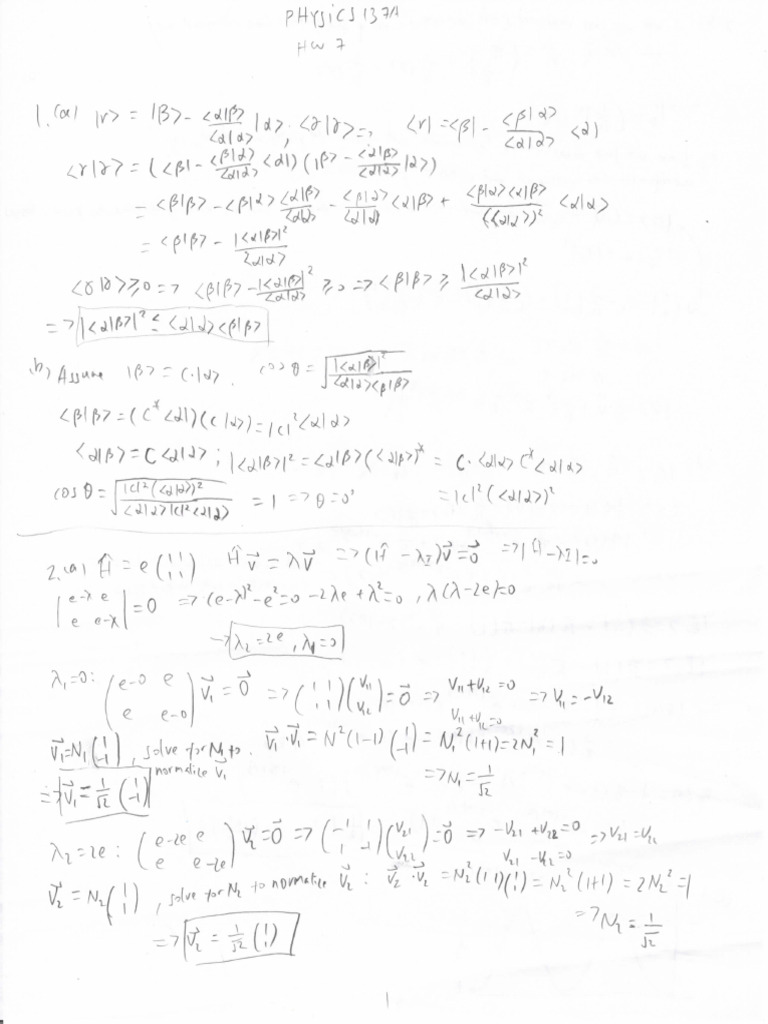 PHYSICS 137A
HW 7
1. (a) |γ> = |β> - <α|β>/<α|α> |α>; <γ|γ> =, <γ| = <β| - <β|α>/<α|α> <α|
<γ|γ> = (<β| - <β|α>/<α|α> <α|) (|β> - <α|β>/<α|α> |α>)
= <β|β> - <β|α> <α|β>/<α|α> - <β|α>/<α|α> <α|β> + <β|α><α|β>/(<α|α>)² <α|α>
= <β|β> - |<α|β>|²/<α|α>
<γ|γ> ≥ 0 => <β|β> - |<α|β>|²/<α|α> ≥ 0 => <β|β> ≥ |<α|β>|²/<α|α>
=> |<α|β>|² ≤ <α|α><β|β>
(b) Assume |β> = C·|α>. cos θ = √(|<α|β>|²/<α|α><β|β>)
<β|β> = (C* <α|)(C|α>) = |C|² <α|α>
<α|β> = C<α|α>; |<α|β>|² = <α|β>(<α|β>)* = C·<α|α> C* <α|α>
cos θ = √(|C|²(<α|α>)²/<α|α>|C|²<α|α>) = 1 => θ = 0° = |C|²(<α|α>)²
2. (a) Ĥ = e (1 1; 1 1) Ĥv⃗ = λv⃗ => (Ĥ - λI)v⃗ = 0⃗ => |Ĥ - λI| = 0
|e-λ e; e e-λ| = 0 => (e-λ)² - e² = 0 - 2λe + λ² = 0, λ(λ-2e) = 0
→ λ₂ = 2e, λ₁ = 0
λ₁ = 0: (e-0 e; e e-0) v⃗₁ = 0⃗ => (1 1; 1 1)(v₁₁; v₁₂) = 0⃗ => v₁₁ + v₁₂ = 0 v₁₁ + v₁₂ = 0 => v₁₁ = -v₁₂
v⃗₁ = N₁(1; -1), solve for N₁ to normalize v⃗₁ v⃗₁·v⃗₁ = N²(1 -1)(1; -1) = N₁²(1+1) = 2N₁² = 1
=> N₁ = 1/√2
=> v⃗₁ = 1/√2 (1; -1)
λ₂ = 2e: (e-2e e; e e-2e) v⃗₂ = 0⃗ => (-1 1; 1 -1)(v₂₁; v₂₂) = 0⃗ => -v₂₁ + v₂₂ = 0 v₂₁ - v₂₂ = 0 => v₂₁ = v₂₂
v⃗₂ = N₂(1; 1), solve for N₂ to normalize v⃗₂: v⃗₂·v⃗₂ = N₂²(1 1)(1; 1) = N₂²(1+1) = 2N₂² = 1
=> N₂ = 1/√2
=> v⃗₂ = 1/√2 (1; 1)
1